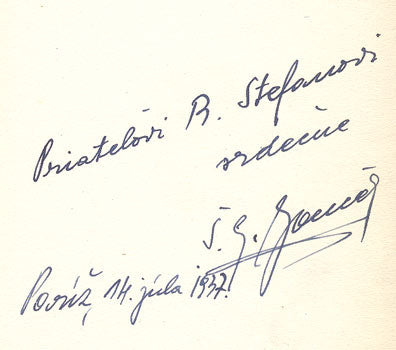 Priateľovi R. Stefanovi
srdečne
Š. G.
Paríž, 14. júla 1937.